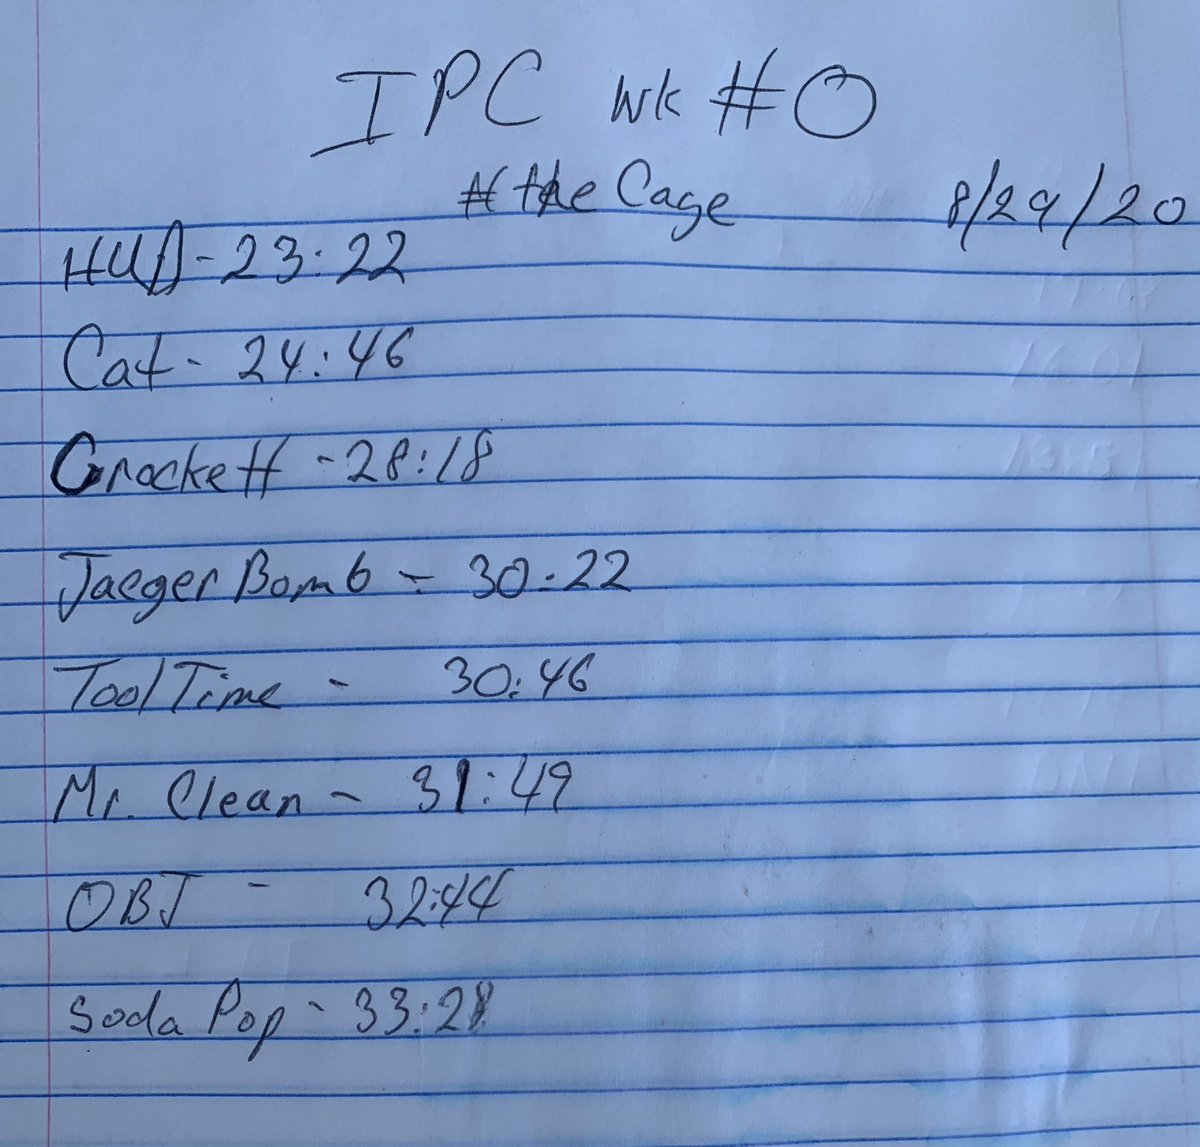 IPC Wk #0
# the Cage 8/29/20
HUD - 23:22
Cat - 24:46
Crockett - 28:18
Jaeger Bomb - 30:22
Tool Time - 30:46
Mr. Clean - 31:49
OBJ - 32:44
Soda Pop - 33:28